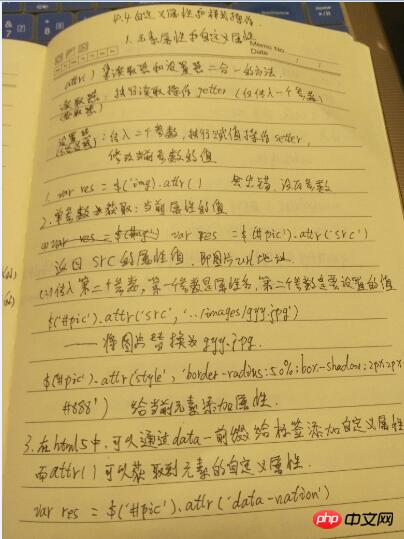 4.4 自定义属性和样式操作.
1. 元素属性和自定义属性
Memo No.
Date
attr() 集读取器和设置器二合一的方法.
读取器: 执行读取操作 getter (仅传入一个参数)
(获取器)
设置器: 传入二个参数, 执行赋值操作 setter,
修改当前参数的值
1. var res = $('img').attr() 会出错, 没有参数
2. 单参数 获取: 当前属性的值
var res = $('#pic').attr('src')
返回 src 的属性值, 即图片url地址
(2) 传入第二个参数, 第一个参数是属性名, 第二个参数是要设置的值
$('#pic').attr('src', '../images/gyy.jpg')
—— 将图片替换为 gyy.jpg.
$(#pic').attr('style', 'border-radius:50%;box-shadow:2px 2px
#888') 给当前元素添加属性.
3. 在html5中, 可以通过data-前缀给标签添加自定义属性
而attr()可以获取到元素的自定义属性.
var res = $('#pic').attr('data-nation')
php 中文网